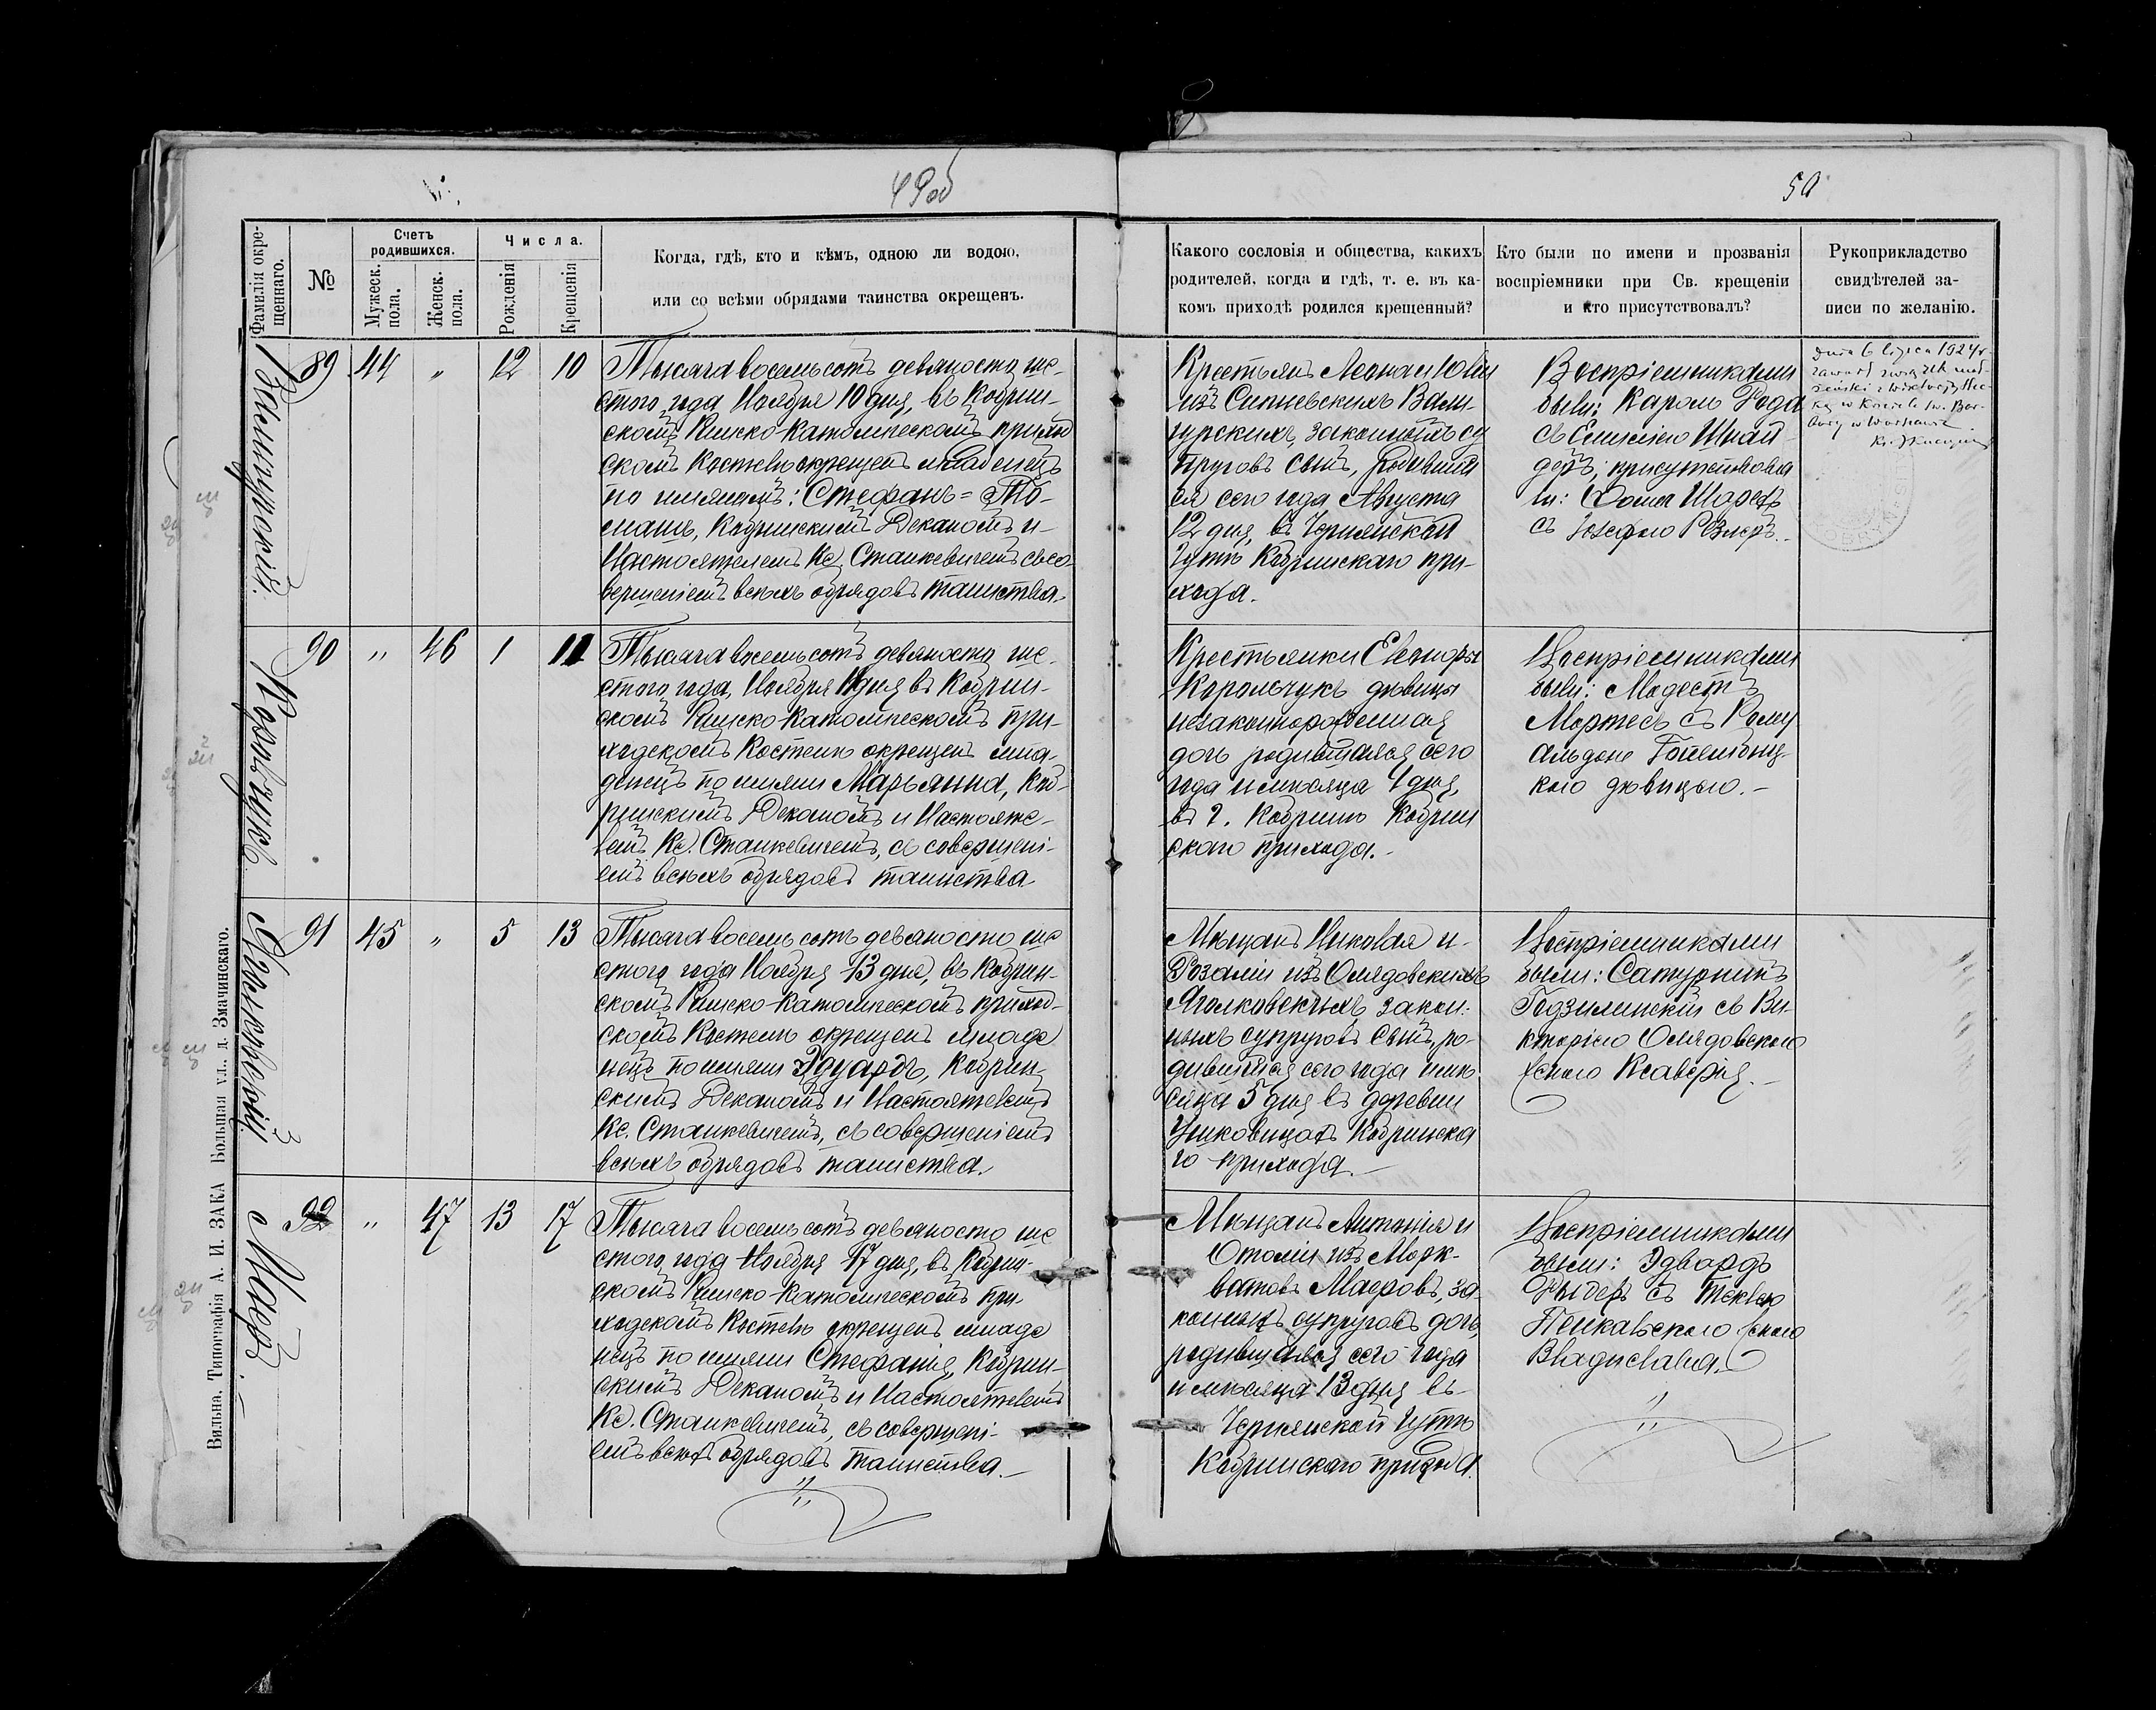 49об
50
Фамилія окре-
щеннаго.
№
Счетъ
родившихся.
Мужеск.
пола.
Женск.
пола.
Числа.
Рожденія
Крещенія
Когда, гдѣ, кто и кѣмъ, одною ли водою,
или со всѣми обрядами таинства окрещенъ.
Какого сословія и общества, какихъ
родителей, когда и гдѣ, т. е. въ ка-
комъ приходѣ родился крещенный?
Кто были по имени и прозванія
воспріемники при Св. крещеніи
и кто присутствовалъ?
Рукоприкладство
свидѣтелей за-
писи по желанію.
89 44 " 12 10
Тысяча восемьсотъ девяносто ше-
стого года Ноября 10 дня, въ Кобрин-
скомъ Римско-Католическомъ приход
скомъ Костелѣ окрещенъ младенецъ
по именамъ: Стефанъ = Ѳо-
машъ, Кобринскимъ Деканомъ и
Настоятелемъ Кс. Станкевичемъ съ со-
вершеніемъ всѣхъ обрядовъ таинства.
Крестьянъ и Юліи
изъ
законныхъ су
пруговъ сынъ, родивший
ся сего года Августа
12 дня, въ Чернянской
Гутѣ Кобринскаго при-
хода.
Воспріемниками
были: Кароль
съ Емиліею
присутствовали
ли:
съ Іозефою
dnia 6 lipca 1924 r.
zawarł związek mał-
żeński z Wiktorją
w Kościele św. Bar-
bary w Warszawie
90 " 46 1 11
Корольчукъ
Тысяча восемьсотъ девяносто ше-
стого года, Ноября 11 дня въ Кобрин-
скомъ Римско-Католическомъ при-
ходскомъ Костелѣ окрещенъ мла-
денецъ по имени Марьянна, Коб-
ринскимъ Деканомъ и Настояте-
лемъ Кс. Станкевичемъ, съ совершені-
емъ всѣхъ обрядовъ таинства
Крестьянки Елеоноры
Корольчукъ дѣвицы
незаконорожденная
дочь родившаяся сего
года и мѣсяца 1 дня,
въ г. Кобринѣ Кобрин
скаго прихода.-
Воспріемниками
были: Модестъ
съ Рому
альдою
дѣвицею.-
91 45 " 5 13
Тысяча восемьсотъ девяносто ше
стого года Ноября 13 дня, въ Кобрин-
скомъ Римско-Католическомъ приход-
скомъ Костелѣ окрещенъ младе
нецъ по имени Эдуардъ, Кобрин-
скимъ Деканомъ и Настоятелемъ
Кс. Станкевичемъ, съ совершеніемъ
всѣхъ обрядовъ таинства.
Мѣщанъ Николая и
Розаліи изъ Олядовскихъ
закон-
ныхъ супруговъ сынъ, ро-
дившійся сего года и мѣ
сяца 5 дня въ деревни
Кобринска
го прихода.-
Воспріемниками
были: Сатурнинъ
съ Ви-
кторіею Олядовскою
женою Ксаверія.-
92 " 47 13 17
Маеръ
Тысяча восемьсотъ девяносто ше
стого года Ноября 17 дня, въ Кобрин-
скомъ Римско-Католическомъ при-
ходскомъ Костелѣ окрещенъ младе
нецъ по имени Стефанія, Кобрин-
скимъ Деканомъ и Настоятелемъ
Кс. Станкевичемъ, съ совершені-
емъ всѣхъ обрядовъ таинства.-
Мѣщанъ Антонія и
изъ Марк-
вартовъ Маеровъ, за-
конныхъ супруговъ дочь,
родившаяся сего года
и мѣсяца 13 дня въ
Чернянской Гутѣ
Кобринскаго прихода.
Воспріемниками
были: Эдвардъ
съ Теклею
женою
Владислава.
Вильна. Типографія А. И. ЗАКА Большая ул., д. Змачинскаго.